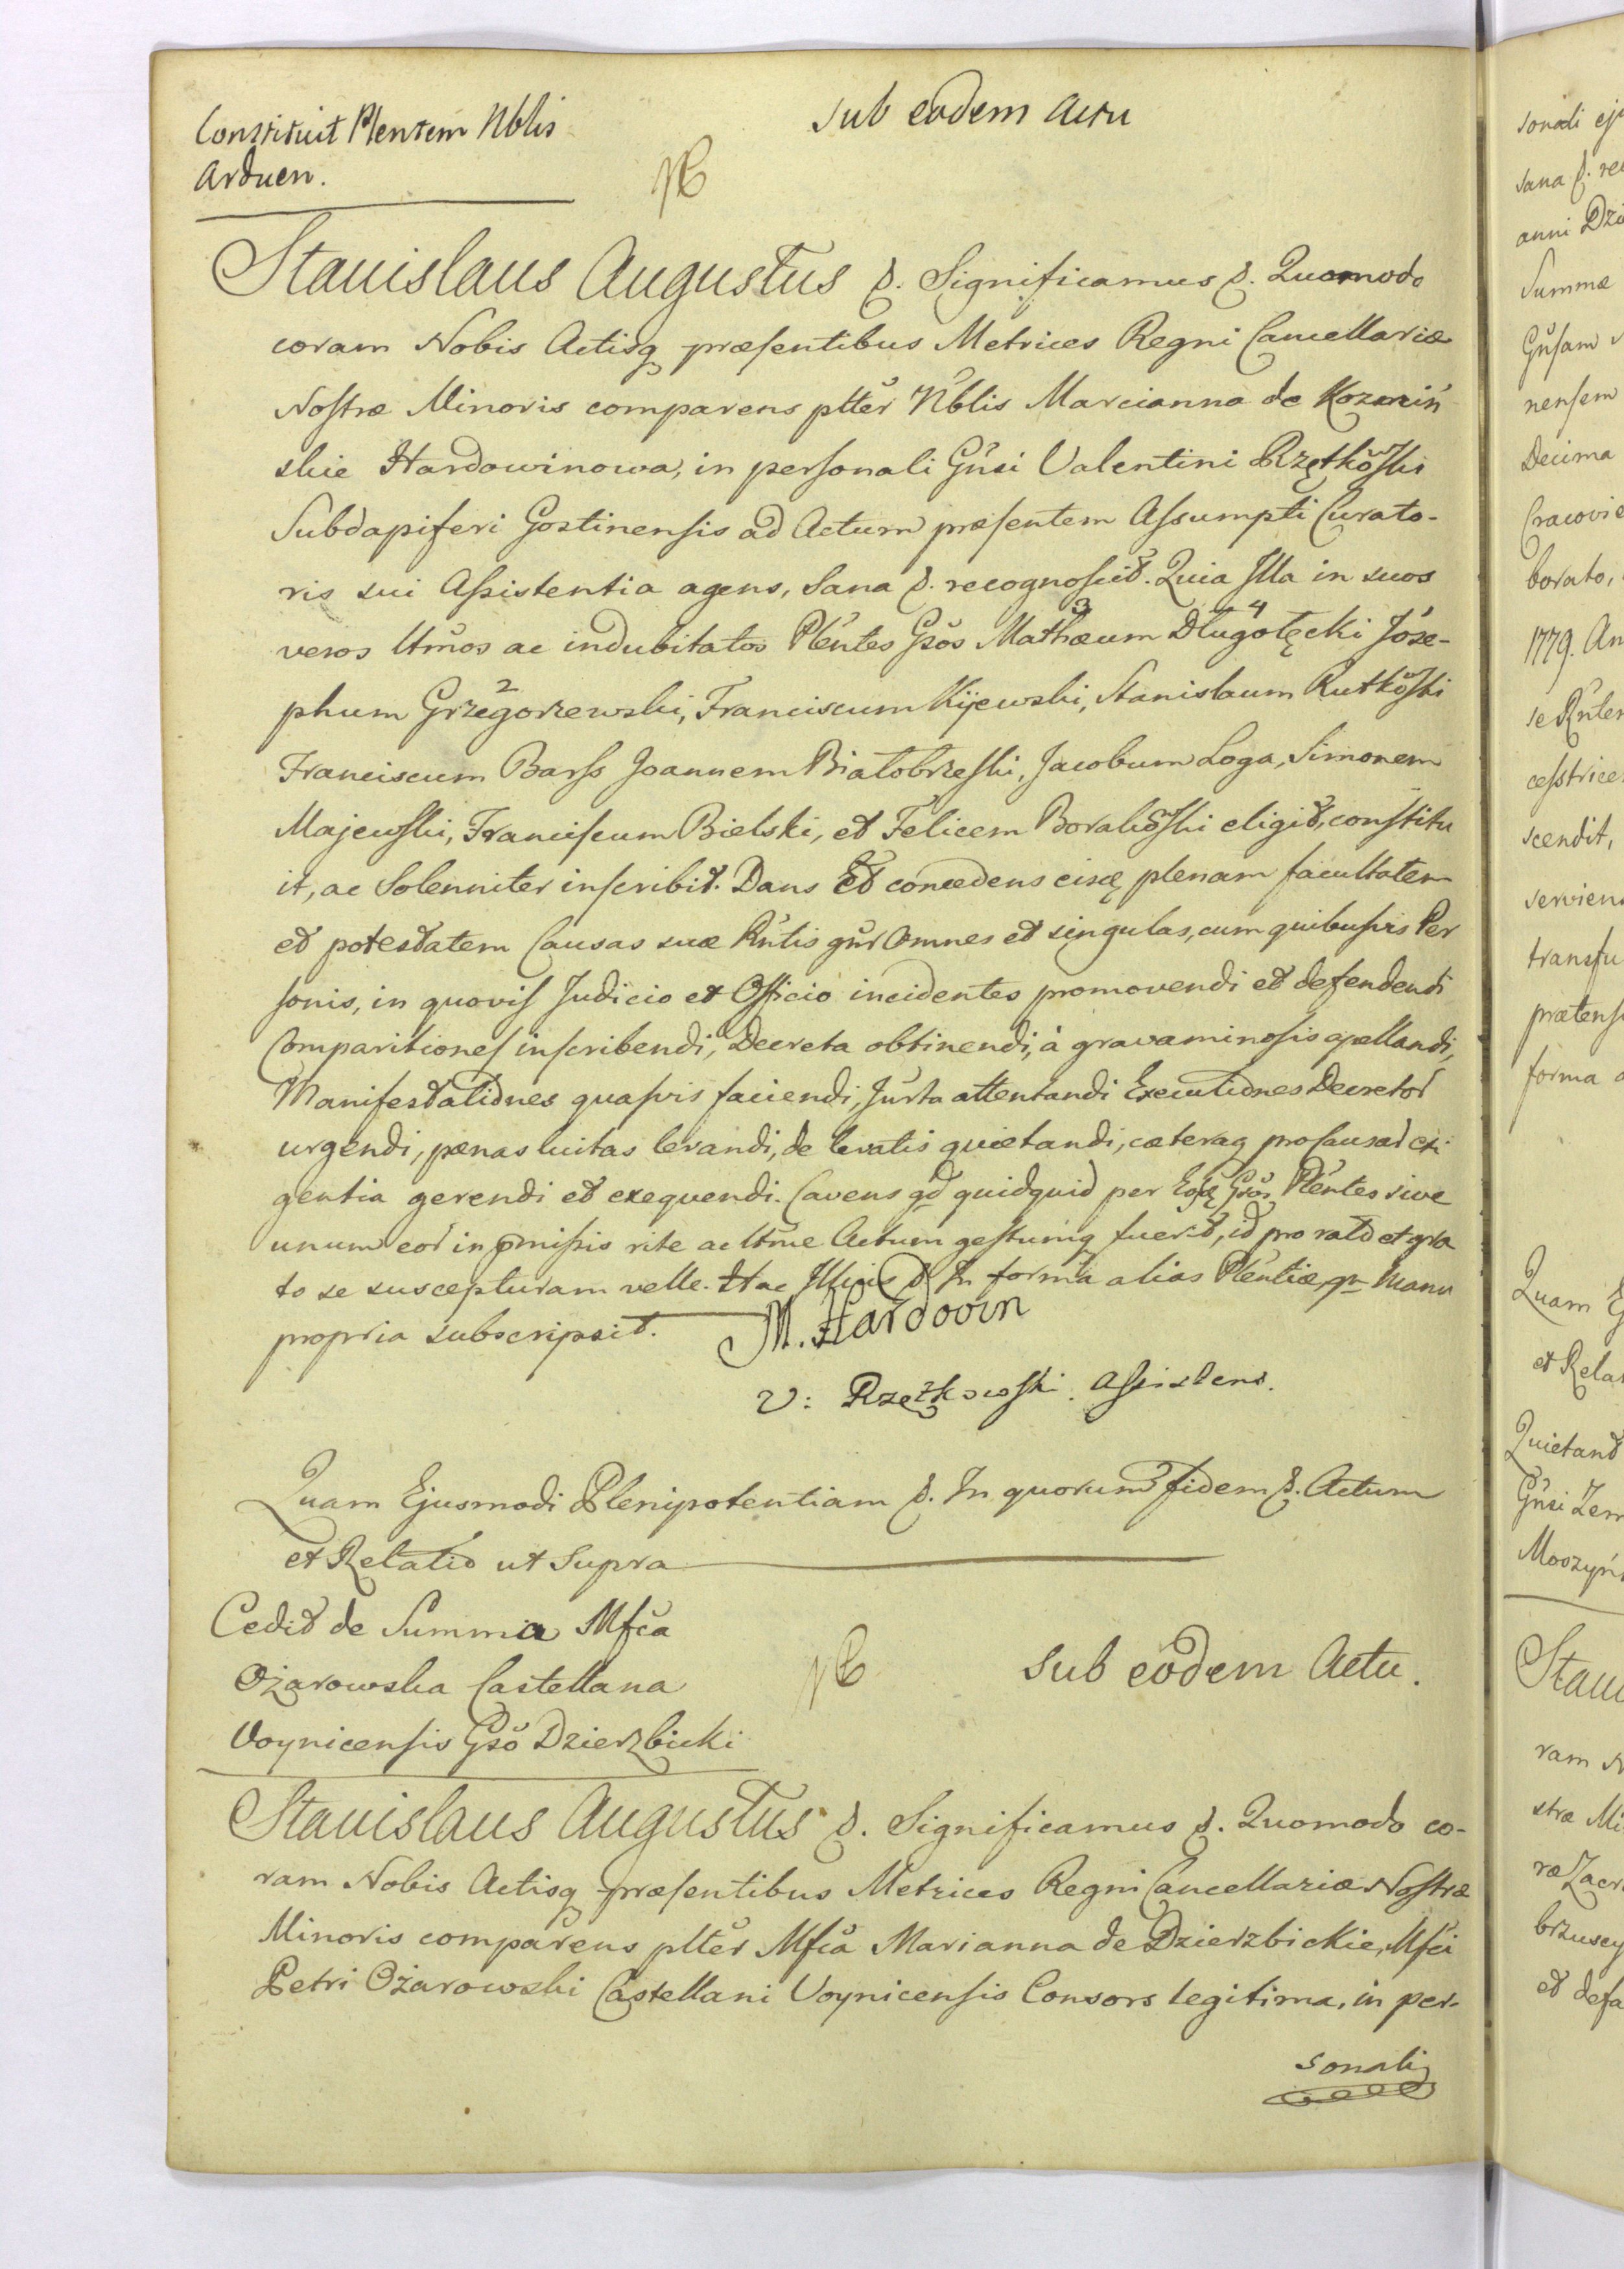 Constituit Plentem Nblis
Arduen.
sub eodem Actu
Stanislaus Augustus &. Significamus &. Quomodo
coram Nobis Actisq præsentibus Metrices Regni Cancellariæ
Nostræ Minoris comparens pltter Nblis Marcianna de Kozmiń
skie Hardowinowa, in personali Gnsi Valentini Rzętkowski
Subdapiferi Gostinensis ad Actum præsentem Assumpti Curato-
ris sui Assistentia agens, Sana &. recognoscit. Quia Illa in suos
veros ltmos ac indubitatos Plentes Gsos Mathæum 3 Długołęcki 4 Józe-
phum Grzegorzewski, 2 Franciscum Kijewski, Stanislaum Rutkoski
Franciscum Barss Joannem Białobrzeski, Jacobum Loga, Simonem
Majewski, Franciscum Bielski, et Felicem Borakoski eligit, constitu
it, ac Solenniter inscribit. Dans Et concedens eisq plenam facultatem
et potestatem Causas suæ Rntis gnr Omnes et singulas, cum quibusvis Per
sonis, in quovis Judicio et Officio incidentes promovendi et defendendi
Comparitiones inscribendi, Decreta obtinendi, à gravaminosis apellandi,
Manifestationes quasvis faciendi, Jurta attentandi Executiones Decretor
urgendi, pænas luitas levandi, de levatis quietandi, cæteraq pro Causar exi
gentia gerendi et exequendi. Cavens qd quidquid per Eosd Gsos Plentes sive
unum eor in pmissis rite ac ltme Actum gestumq fuerit, id pro rato et gra
to se suscepturam velle. Hac Illius &. In forma alias Plentiæ qm Manu
propria subscripsit.
M. Hardovin
V: Rzętkowski Assistens.
Quam Ejusmodi Plenipotentiam &. In quorum fidem &. Actum
et Relatio ut Supra
Cedit de Summa Mfca
Ożarowska Castellana
Voynicensis Gso Dzierzbicki
Sub eodem Actu.
Stanislaus Augustus &. Significamus &. Quomodo co-
ram Nobis Actisq præsentibus Metrices Regni Cancellariæ Nostræ
Minoris comparens pltter Mfca Marianna de Dzierzbickie, Mfci
Petri Ożarowski Castellani Voynicensis Consors legitima, in per-
sonali
sonali
sana &.
anni
Summæ
Gnsam
nensem
Decima
borato,
1779. An
scendit,
forma
Quam
et Rela
Quietant
Gnsi
ram
stræ Mi